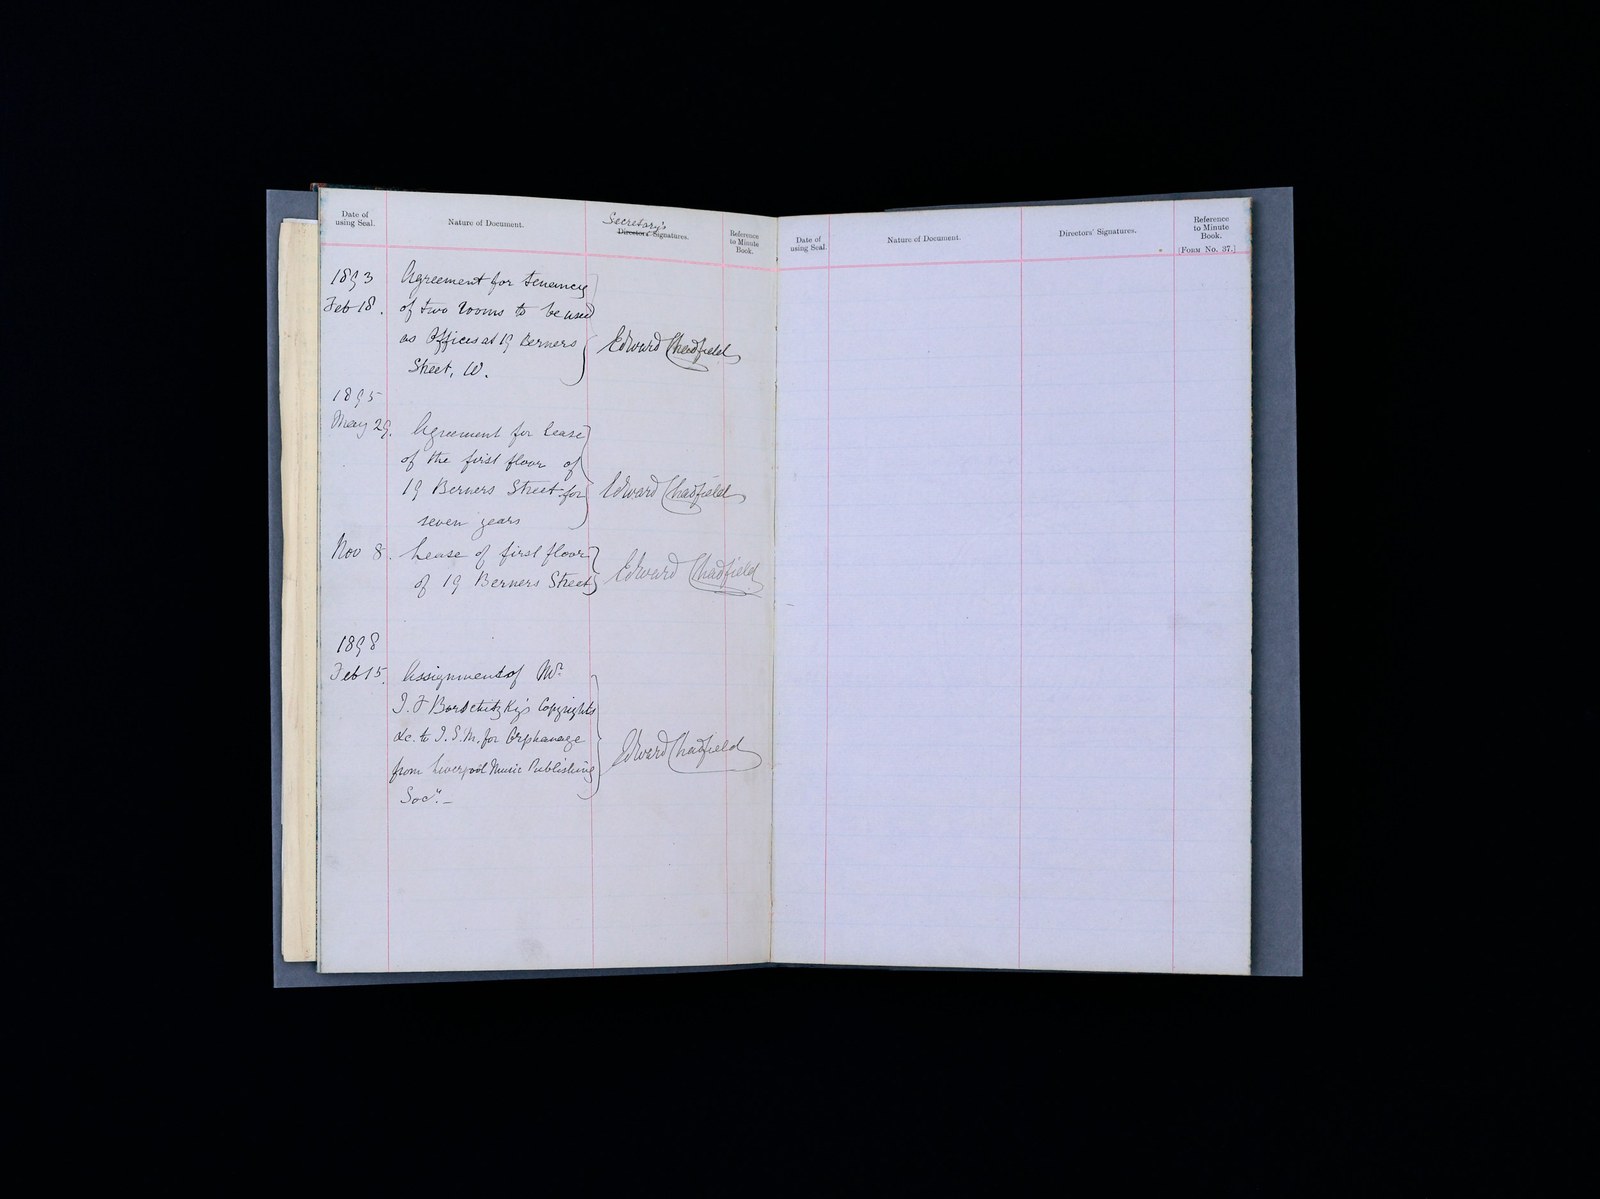 Date of
using Seal.
Nature of Document.
Secretary's
Directors' Signatures.
Reference
to Minute
Book.
1893
Feb 18.
Agreement for tenancy
of two rooms to be used
as Offices at 19 Berners
Street, W.
Edward Chadfield
1895
May 29.
Agreement for lease
of the first floor of
19 Berners Street for
seven years
Edward Chadfield
Nov 8.
Lease of first floor
of 19 Berners Street
Edward Chadfield
1898
Feb 15.
Assignment of Mr
Copyrights
&c. to I.S.M. for Orphanage
from Liverpool Music Publishing
Socy. —
Edward Chadfield
Date of
using Seal.
Nature of Document.
Directors' Signatures.
Reference
to Minute
Book.
[Form No. 37.]